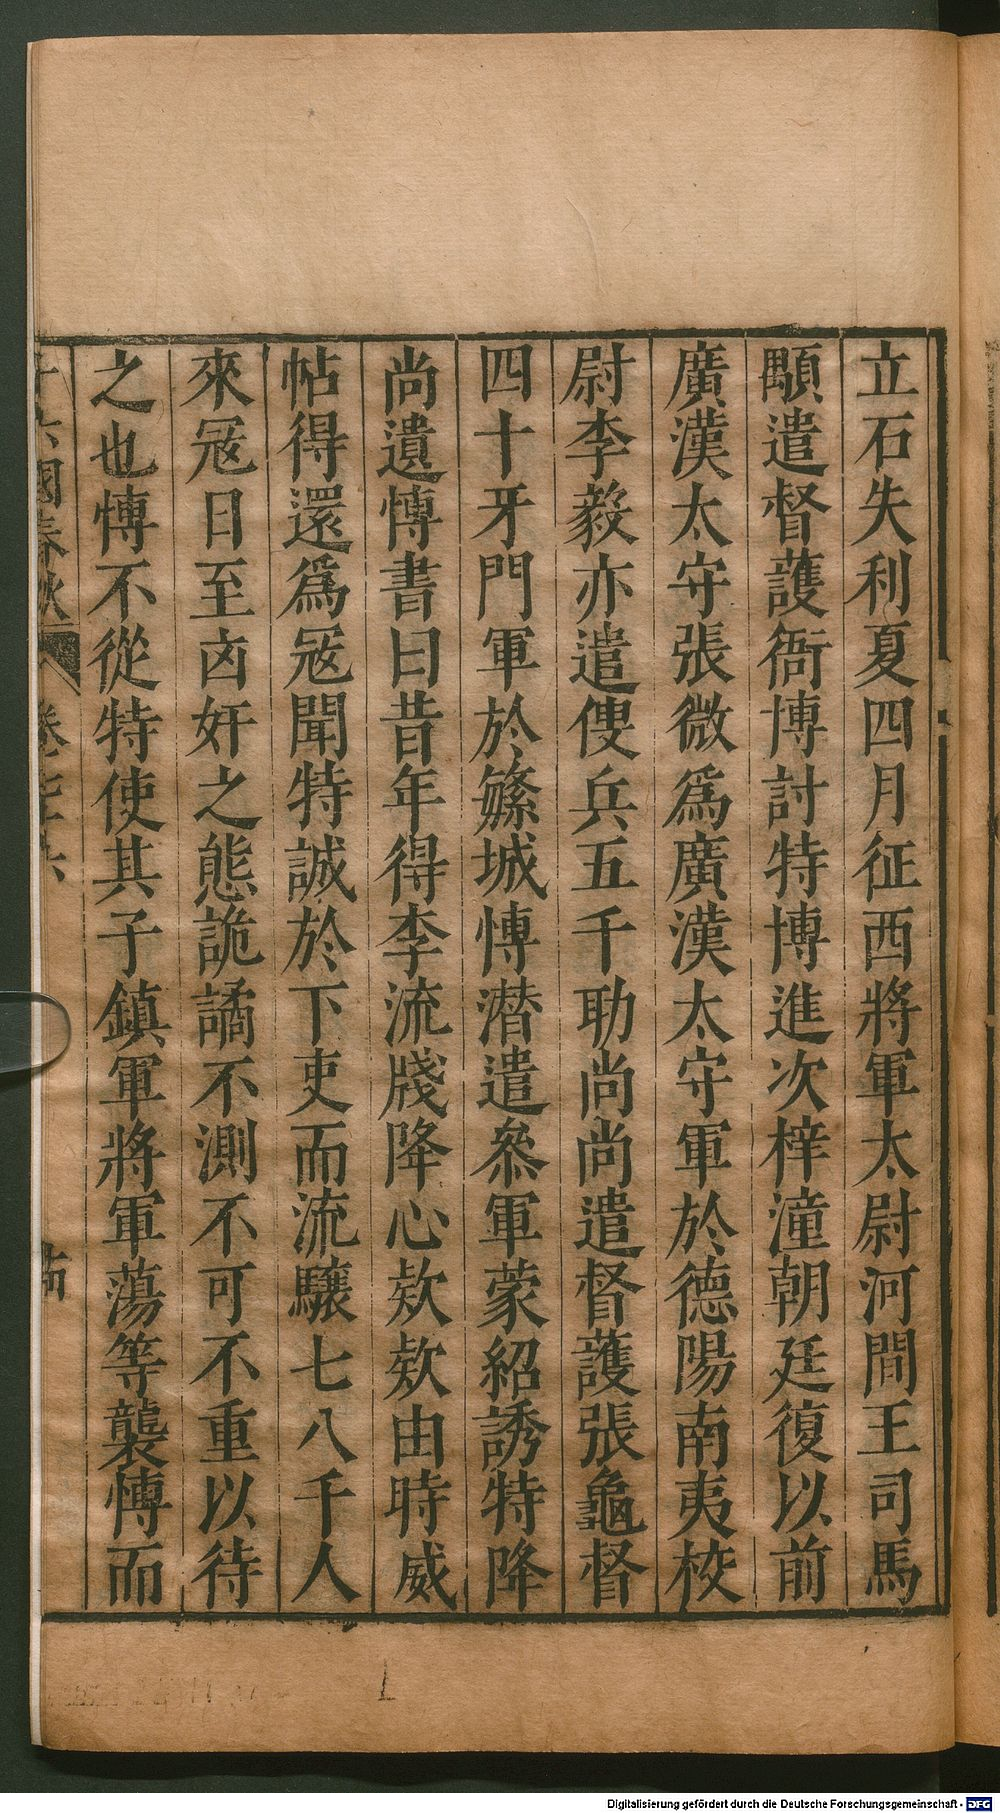 立石失利夏四月征西將軍太尉河間王司馬
顒遣督護衙博討特博進次梓潼朝廷復以前
廣漢太守張微爲廣漢太守軍於德陽南夷校
尉李毅亦遣叟兵五千助尚尚遣督護張龜督
四十牙門軍於繁城愽潜遣叅軍蒙紹誘特降
尚遺愽書曰昔年得李流牋降心欵欵由時威
帖得還爲冦聞特誠於下吏而流驤七八千人
來冦日至卤奸之態詭譎不測不可不重以待
之也愽不從特使其子鎮軍將軍蕩等襲愽而
十六國春秋 卷七十六
Digitalisierung gefördert durch die Deutsche Forschungsgemeinschaft - DFG